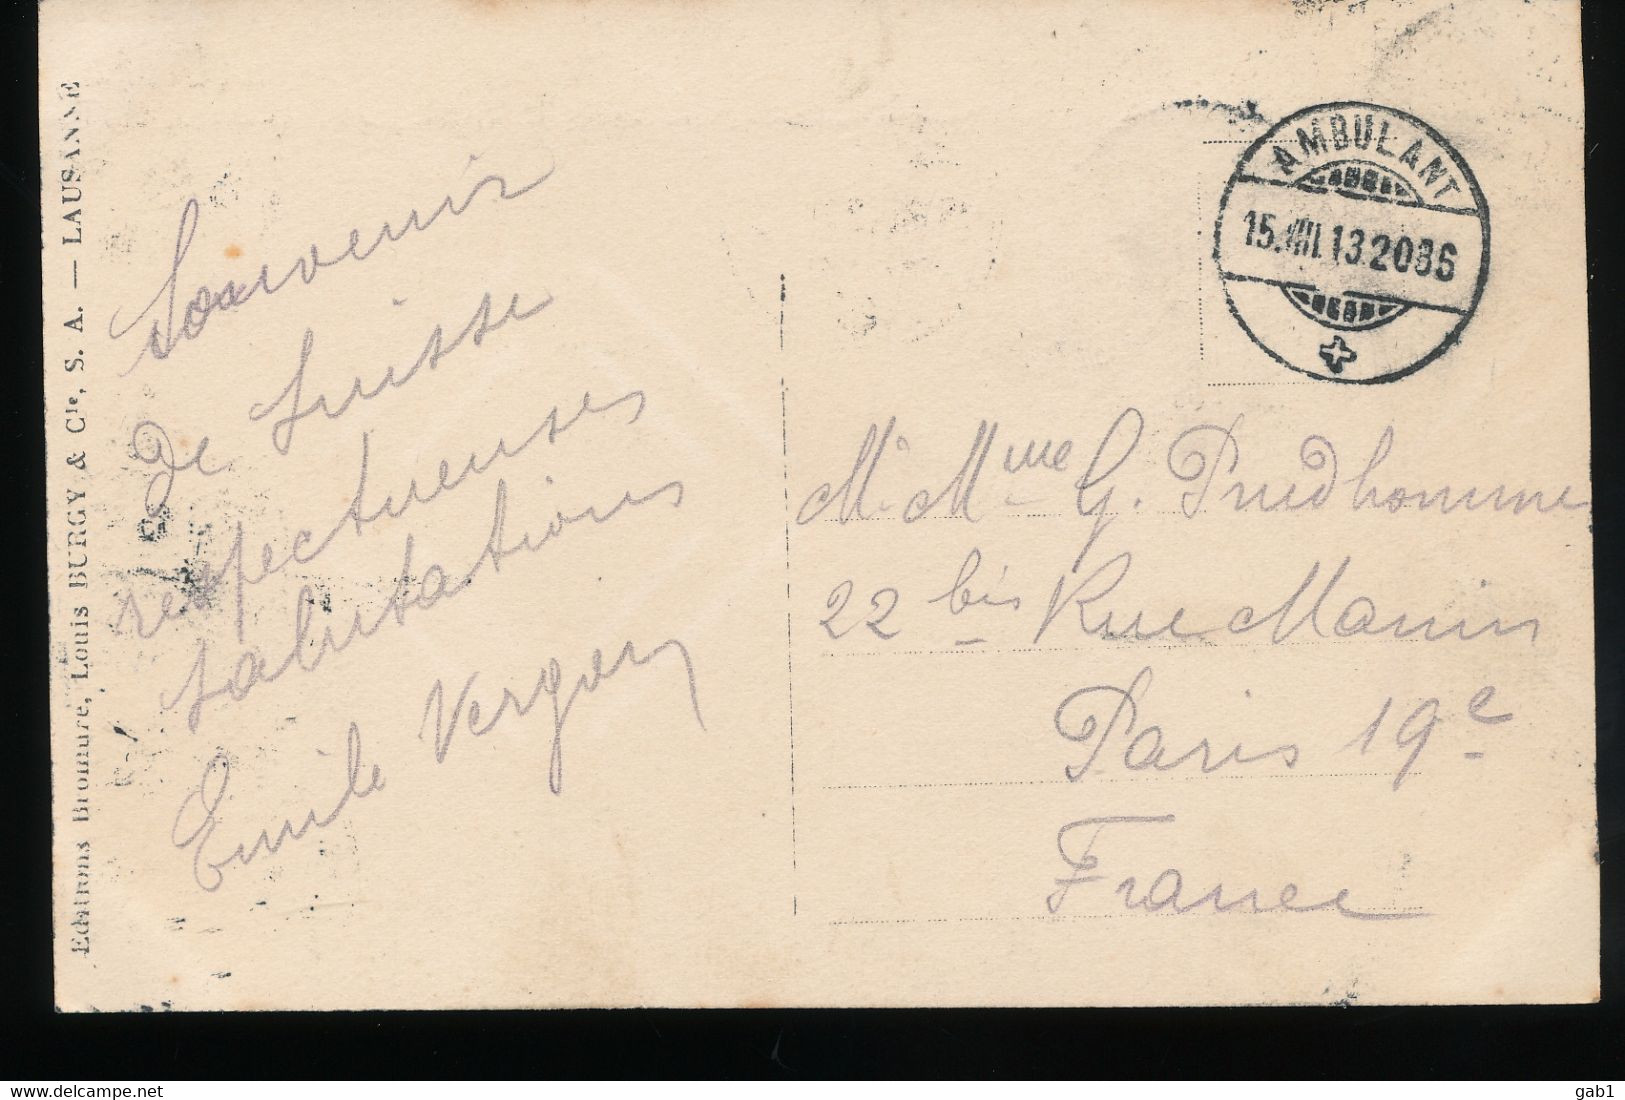 Editions Bromure, Louis BURGY & Cie, S. A. — LAUSANNE
Souvenir
de Suisse
respectueuses
salutations
Emile
AMBULANT
15.VIII.13.2086
M. Mme G. Prudhomme
22 bis Rue Manin
Paris 19e
France
delcampe.net
gab1